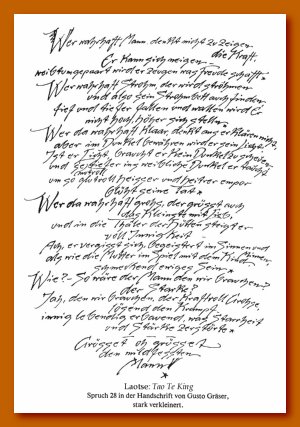 Wer wahrhaft Mann denkt nicht zu zeigen
die Kraft.
Er kann sich neigen
weibtumgepaart wird er zeugen was Freude schafft
Wer wahrhaft Strohm, der wird ströhmen
und also sein Strohmbett auch finden
tief und tiefer fallen und walten wird er
nicht hoch, höher sich stellen
Wer da wahrhaft Klaar, denkt ans er Klären nicht,
aber im Dunkel wird er sein
Ist er Licht, braucht er kein Dunkel zu scheuen
und in weibliche Dunkel er taucht
um so glutroth heisser und heitrer empor
Glüht seine Tat
Wer da wahrhaft grohs, der grüsst auch
das Kleinste mit Lieb,
und in die Thäler der Hütten steigt er
voll Innigkeit
Ach, er vergisst sich, begeistert im Sinnen und
als wie die Mutter im Spiel mit dem Kind
ewiges Sein
Wie? – So wäre der Mann den wir brauchen?
der Starke?
Jah, den wir brauchen, der kraftvoll Grohse,
lösend den Krampf,
innig lebendig erbauend, was Starrheit
und Stärke zerstörte
Grösset oh grösset
den mildfesten
Mann!
Laotse: Tao Te King
Spruch 28 in der Handschrift von Gusto Gräser,
stark verkleinert.